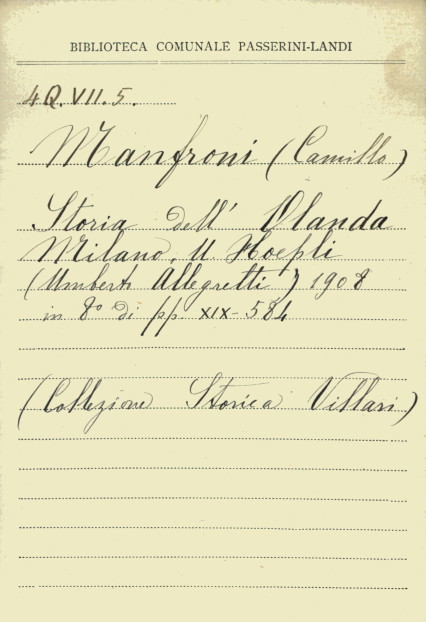 BIBLIOTECA COMUNALE PASSERINI-LANDI
4Q.VII.5.
Manfroni (Camillo)
Storia dell' Olanda
Milano, U. Hoepli
(Umberto Allegretti) 1908
in 8º di pp. XIX-584
(Collezione Storica Villari)